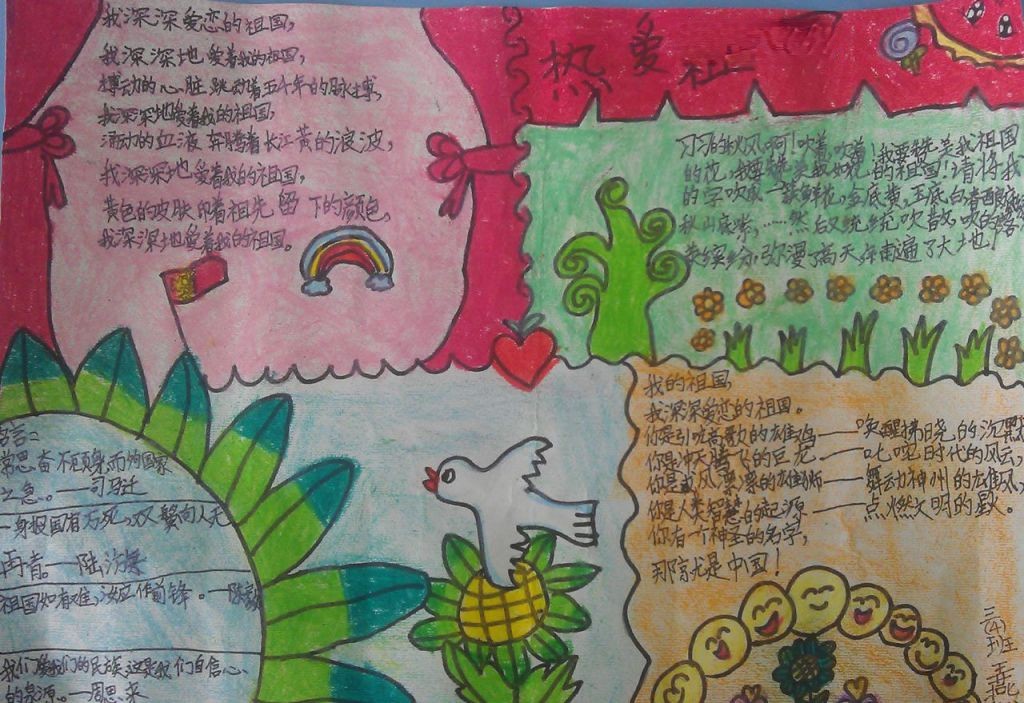 我深深爱恋的祖国,
我深深地爱着我的祖国,
搏动的心脏跃动着五千年的脉搏,
我深深地爱着我的祖国,
涌动的血液奔腾着长江黄的浪波,
我深深地爱着我的祖国,
黄色的皮肤印着祖先留下的颜色,
我深深地爱着我的祖国。
热爱祖
习习的秋风啊!吹着,吹着!我要赞美我祖国
的花,我要赞美我如花的祖国!请将我
的字吹成一簇鲜花,金底黄,玉底白,春
秋山底紫,……然后又统统吹散,吹的
英缤纷,弥漫了高天,铺遍了大地!
我的祖国,
我深深爱恋的祖国。
你是引吭高歌的雄鸡——唤醒拂晓的沉默
你是冲天腾飞的巨龙——叱咤时代的风云,
你是威风凛凛的雄狮——舞动神州的雄风,
你是人类智慧的起源——点燃文明的星火。
你有一个神圣的名字,
那就是中国!
名言:
常思奋不顾身,而殉国家
之急。——司马迁
一身报国有万死,双鬓向人无
再青。——陆游
祖国如有难,汝应作前锋。——陈毅
我们爱我们的民族,这是我们自信心
的泉源。——周恩来
三(4)班 王燕